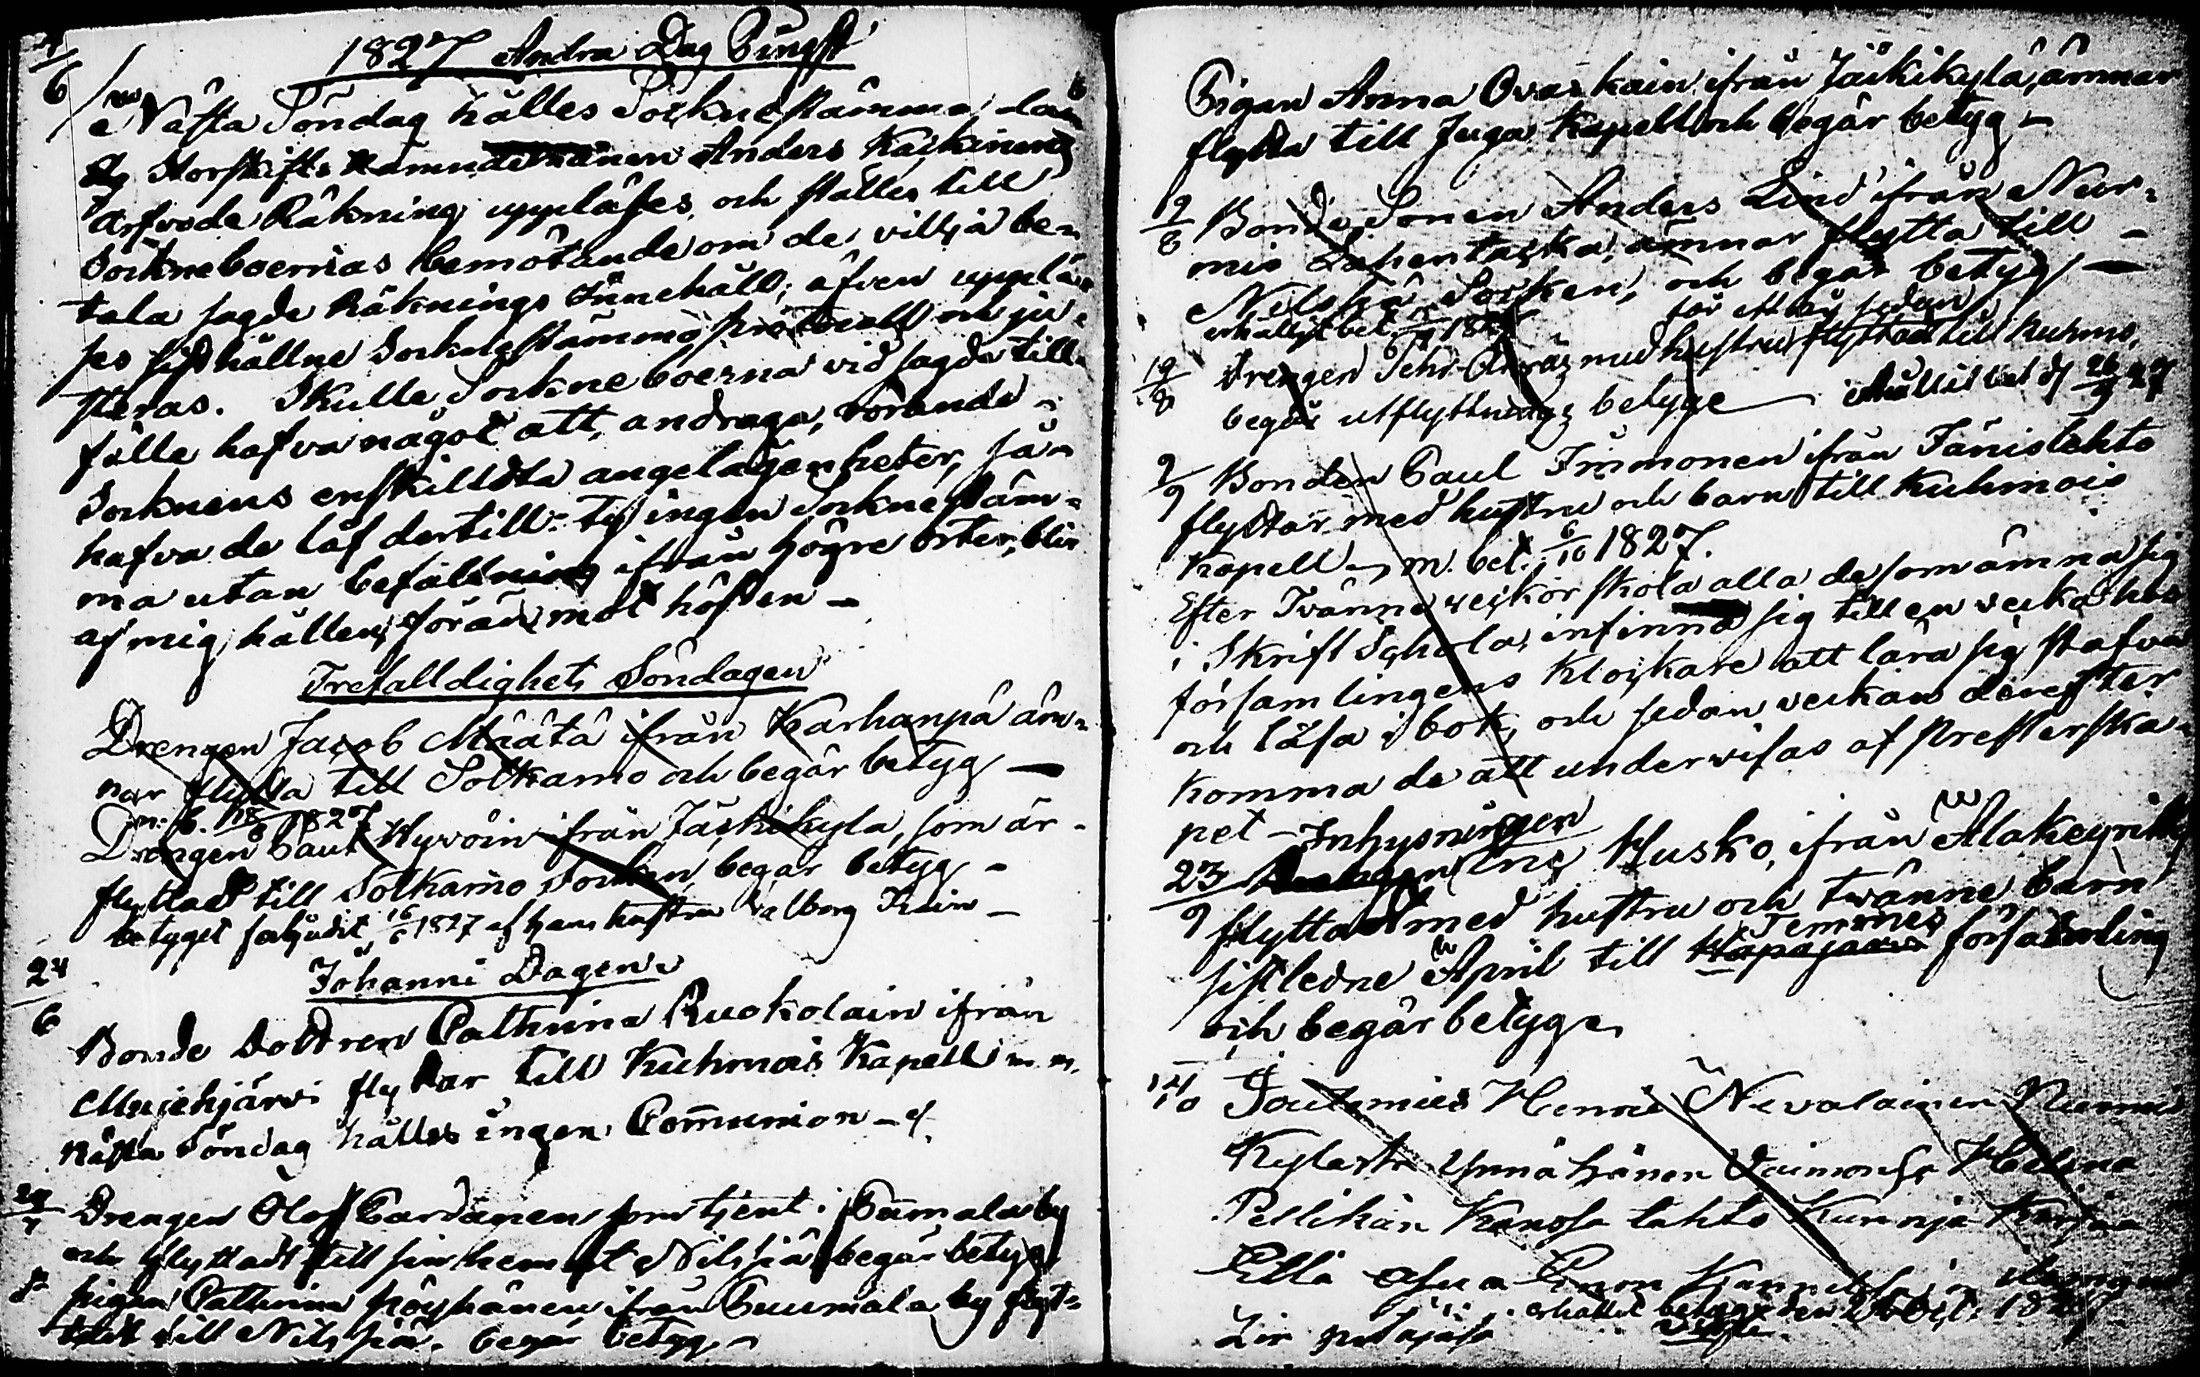 4/6
1827 Andra Dag Pingst
Nästa Söndag hålles Sockne stämma, då
Storskifts Anders Kaskinens
Arfvode Räkning uppläses, och ställes till
Sockneboernas bemötande om de vilja be-
tala sagde Räknings Innehåll; äfven upplä-
ses sisthållne Sockne stämmo protocoll och ju-
steras. Skulle Sockneboerna vid sagde till-
fälle hafva något att andraga, rörande
Socknens enskilldta angelägenheter, så
hafva de låf dertill- ty ingen Socknestäm-
ma utan befallning ifrån högre orter, blir
af mig hållen, förän mot hösten -
Trefalldighets Söndagen
Drengen Jacob Määtä ifrån Karhanpä äm-
nar flytta till Sotkamo och begär betyg -
m. b. 1827
Drengen Paul Hyvöin ifrån Jäskikylä, som är
flyttad till Sotkamo Socken, begär betyg -
betyget 16/6 1827 af hans hustru Valborg
24/6
Johanni Dagen
Bonde Dottren Cathrina Ruokolain ifrån
Mujehjärvi flyttar till Kuhmois Kapell m. m.
Nästa Söndag hålles ingen Communion -
Drengen Olof Pardanen som tjent i Puumala by
och flyttadt till sin hemort Nilsiä begär betyg
pigan Cathrina Pöyhönen ifrån Puumala by flyt-
tadt till Nilsiä. begär betyg -
Pigan Anna Ovaskain ifrån Jäskikylä, ämnar
flytta till Juga Kapell och begär betyg -
19/8 Bonde Sonen Anders Lind ifrån Nur-
mis Lahentaska, ämnar flytta till
Nilsiä Socken, och begär betyg -
erhållit bet. 18
för ett år sedan
19/8 Drengen med hustru flyttat till Kuhmo,
begär utflyttnings betyg erhållit bet d 27
2/9 Bonden Paul Immonen ifrån Jänislahto
flyttar med hustru och barn till Kuhmois
Kapell - m. bet. 6/10 1827.
Efter Tvänne veckor skola alla de som ämna sig
i Skrift Schola, infinna sig till en vecka hos
församlingens Klockare att lära sig stafva
och läsa i bok, och sedan veckan derefter
komma de att undervisas af Presterska-
pet - Inhysningen
23/9 Husko, ifrån Alakeyritty
flyttat med hustru och tvänne barn
Temmes
sistledne April till församling
och begär betyge.
14/10 Henric Nevalainen Nurmis
Kylästä Ynnä hänen Vaimonsa Helena
Pellikän Kanssa tahto
Ellä
erhållit betyge den 1827